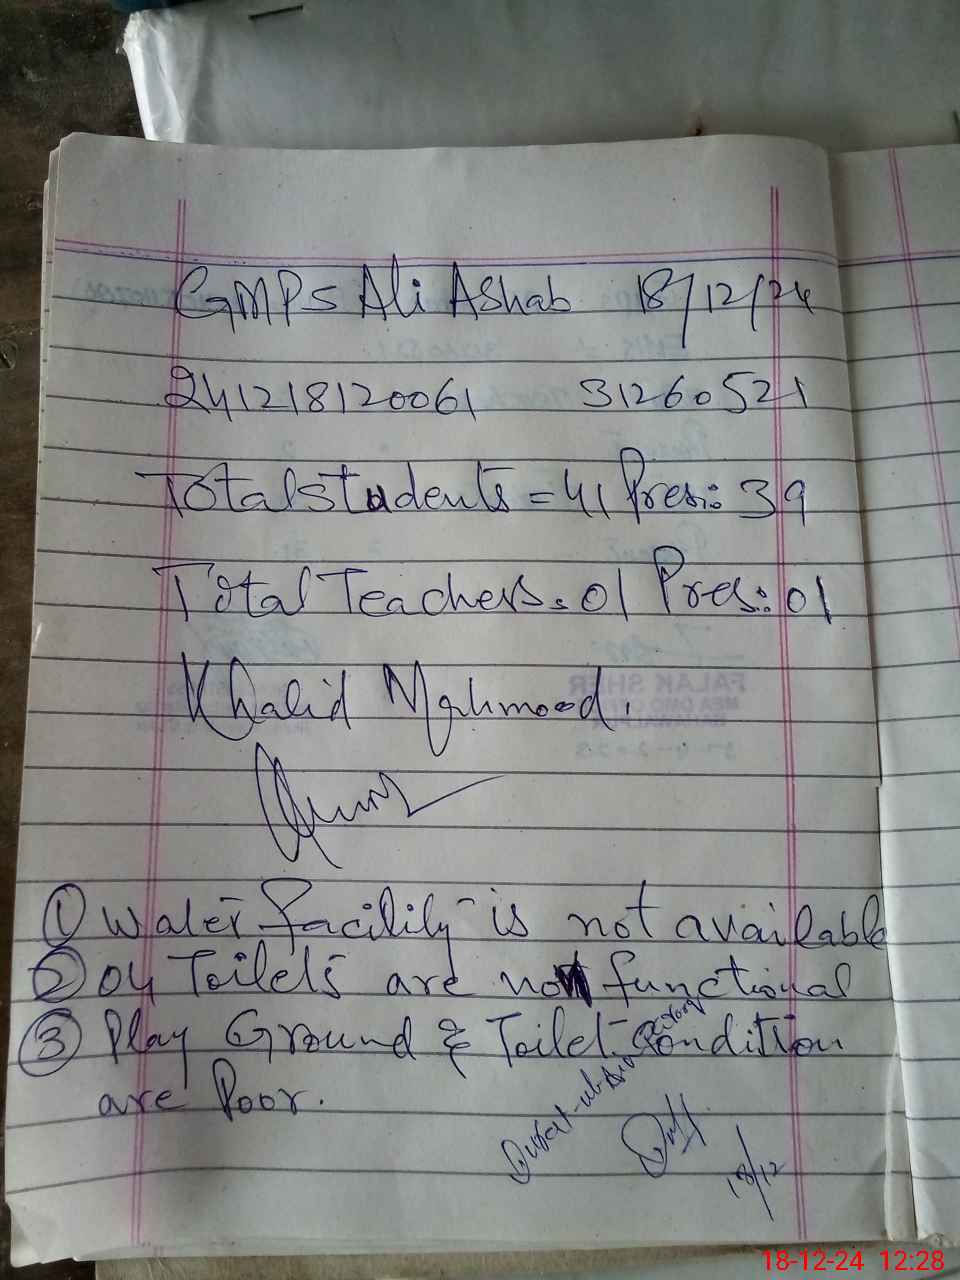 GMPS Ali Ashab 18/12/24
241218120061 31260521
Total students = 41 Pres: 39
Total Teachers = 01 Pres: 01
Khalid Mahmood.
① Water facility is not available
② 04 Toilets are not functional
③ Play Ground & Toilet Condition
are Poor.
18/12
FALAK SHER
18-12-24 12:28